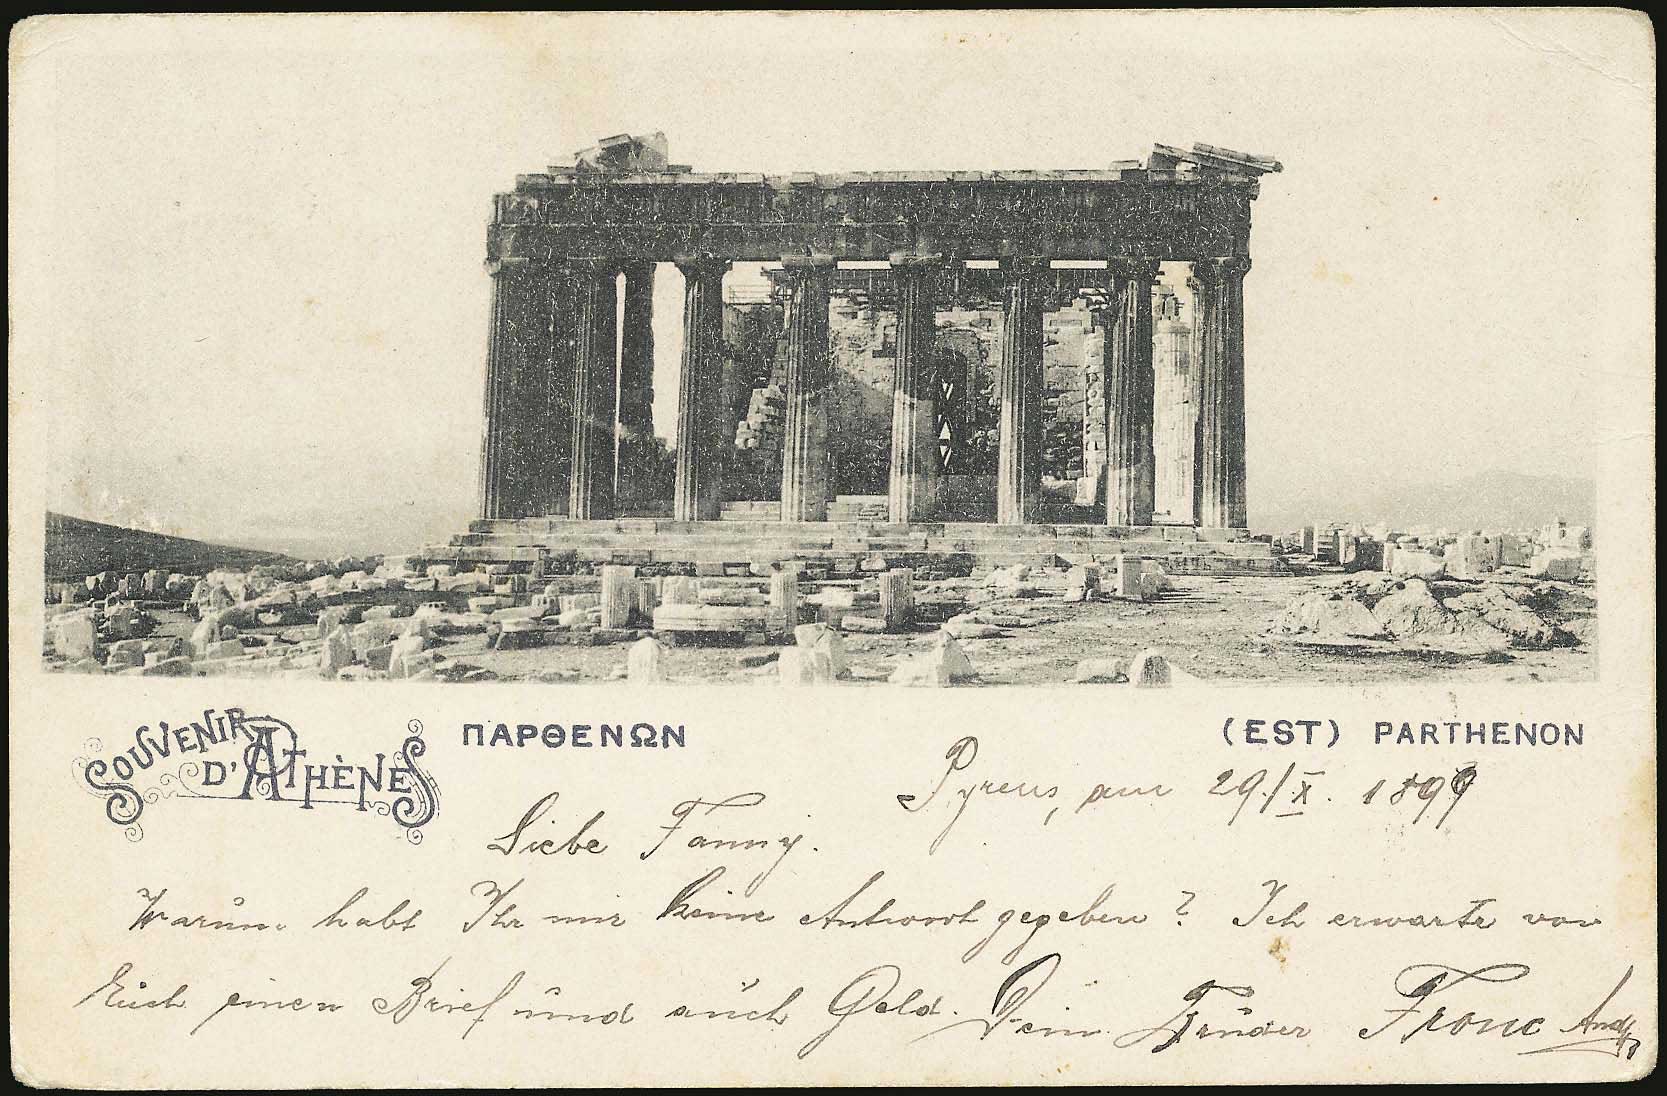 SOUVENIR
D'ATHÈNES
ΠΑΡΘΕΝΩΝ
(EST) PARTHENON
Pyreus, am 29./X. 1899
Liebe Fanny.
Warum habt Ihr mir keine Antwort gegeben? Ich erwarte von
Euch einen Brief und auch Geld. Dein Bruder Franc